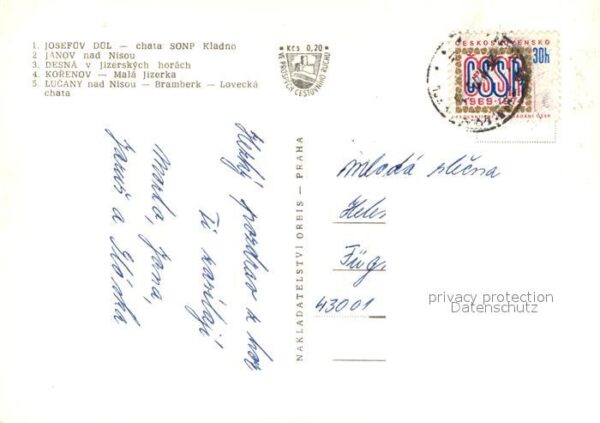 1. JOSEFŮV DŮL — chata SONP Kladno
2 JANOV nad Nisou
3. DESNÁ v Jizerských horách
4. KOŘENOV — Malá Jizerka
5. LUČANY nad Nisou — Bramberk — Lovecká
chata
Kčs 0,20
VE PROSPĚCH CESTOVNÍHO RUCHU
ČESKOSLOVENSKO
30h
ČSSR
1969-1974
NAKLADATELSTVÍ ORBIS — PRAHA
Hezký pozdrav z hor
Ti zasílají
Marta, Jana,
a
mladá slečna
Füg
43001
privacy protection
Datenschutz